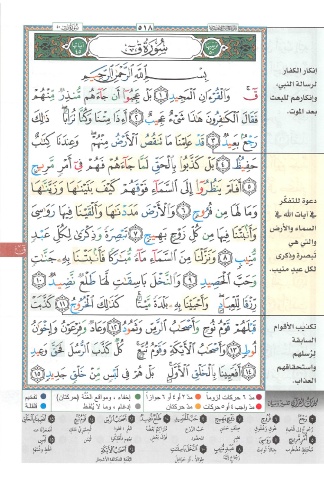 ٥١٨
سُورَةُ ق
بِسْمِ ٱللَّهِ ٱلرَّحْمَٰنِ ٱلرَّحِيمِ
قٓ وَٱلْقُرْءَانِ ٱلْمَجِيدِ ١ بَلْ عَجِبُوٓا۟ أَن جَآءَهُم مُّنذِرٌ مِّنْهُمْ
فَقَالَ ٱلْكَٰفِرُونَ هَٰذَا شَىْءٌ عَجِيبٌ ٢ أَءِذَا مِتْنَا وَكُنَّا تُرَابًا ذَٰلِكَ
رَجْعٌۢ بَعِيدٌ ٣ قَدْ عَلِمْنَا مَا تَنقُصُ ٱلْأَرْضُ مِنْهُمْ وَعِندَنَا كِتَٰبٌ
حَفِيظٌۢ ٤ بَلْ كَذَّبُوا۟ بِٱلْحَقِّ لَمَّا جَآءَهُمْ فَهُمْ فِىٓ أَمْرٍ مَّرِيجٍ
٥ أَفَلَمْ يَنظُرُوٓا۟ إِلَى ٱلسَّمَآءِ فَوْقَهُمْ كَيْفَ بَنَيْنَٰهَا وَزَيَّنَّٰهَا
وَمَا لَهَا مِن فُرُوجٍ ٦ وَٱلْأَرْضَ مَدَدْنَٰهَا وَأَلْقَيْنَا فِيهَا رَوَٰسِىَ
وَأَنۢبَتْنَا فِيهَا مِن كُلِّ زَوْجٍۭ بَهِيجٍ ٧ تَبْصِرَةً وَذِكْرَىٰ لِكُلِّ عَبْدٍ
مُّنِيبٍ ٨ وَنَزَّلْنَا مِنَ ٱلسَّمَآءِ مَآءً مُّبَٰرَكًا فَأَنۢبَتْنَا بِهِۦ جَنَّٰتٍ
وَحَبَّ ٱلْحَصِيدِ ٩ وَٱلنَّخْلَ بَاسِقَٰتٍ لَّهَا طَلْعٌ نَّضِيدٌ ١٠
رِّزْقًا لِّلْعِبَادِ وَأَحْيَيْنَا بِهِۦ بَلْدَةً مَّيْتًا كَذَٰلِكَ ٱلْخُرُوجُ ١١ كَذَّبَتْ
قَبْلَهُمْ قَوْمُ نُوحٍ وَأَصْحَٰبُ ٱلرَّسِّ وَثَمُودُ ١٢ وَعَادٌ وَفِرْعَوْنُ وَإِخْوَٰنُ
لُوطٍ ١٣ وَأَصْحَٰبُ ٱلْأَيْكَةِ وَقَوْمُ تُبَّعٍ كُلٌّ كَذَّبَ ٱلرُّسُلَ فَحَقَّ وَعِيدِ
١٤ أَفَعَيِينَا بِٱلْخَلْقِ ٱلْأَوَّلِ بَلْ هُمْ فِى لَبْسٍ مِّنْ خَلْقٍ جَدِيدٍ ١٥
إنكار الكفار
لرسالة النبي،
وإنكارهم للبعث
بعد الموت.
دعوة للتفكّر
في آيات الله في
السماء والأرض
والتي هي
تبصرة وذكرى
لكل عبد منيب.
تكذيب الأقوام
السابقة
لرسلهم
واستحقاقهم
العذاب.
مدّ ٦ حركات لزوماً
مدّ ٢ أو ٤ أو ٦ جوازاً
إخفاء، ومواقع الغُنَّة (حركتان)
تفخيم
مدّ واجب ٤ أو ٥ حركات
مدّ حركتان
إدغام، وما لا يُلفَظ
قلقلة